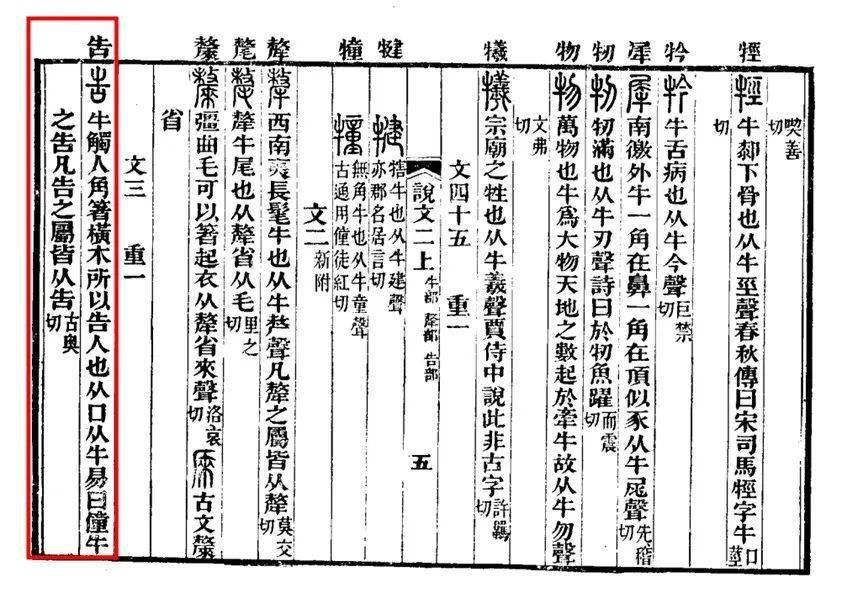 喫善切
牼 牛䣛下骨也从牛巠聲春秋傳曰宋司馬牼字牛口莖切
牛舌病也从牛今聲巨禁切
犀 南徼外牛一角在鼻一角在頂似豕从牛尾聲先稽切
牣 牣滿也从牛刃聲詩曰於牣魚躍而震切
物 萬物也牛爲大物天地之數起於牽牛故从牛勿聲
文弗切
犧 宗廟之牲也从牛羲聲賈侍中說此非古字許羈切
文四十五 重一
說文二上 牛部 犛部 告部 五
犍 犗牛也从牛建聲亦郡名居言切
犝 無角牛也从牛童聲古通用僮徒紅切
文二新附
犛 西南夷長髦牛也从牛𠩺聲凡犛之屬皆从犛莫交切
氂 犛牛尾也从犛省从毛里之切
斄 彊曲毛可以箸起衣从犛省來聲洛哀切 古文斄
省
文三 重一
告 牛觸人角箸橫木所以告人也从口从牛易曰僮牛
之告凡告之屬皆从告古奧切